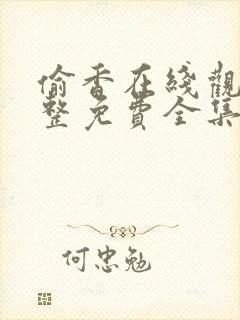 偷香在綫觀
整免費全集
何忠勉